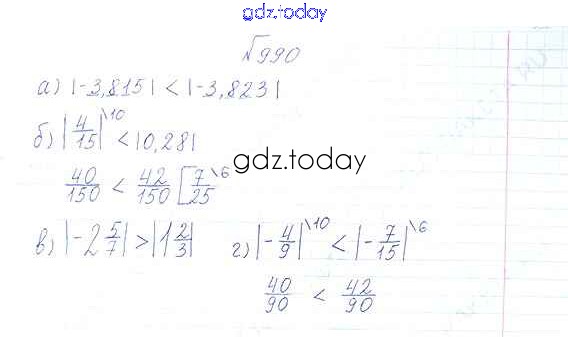 gdz.today
№990
а) |-3,815| < |-3,823|
б) |4/15|\10 < |0,28|
40/150 < 42/150 [7/25\6
gdz.today
в) |-2 5/7| > |1 2/3| г) |-4/9|\10 < |-7/15|\6
40/90 < 42/90